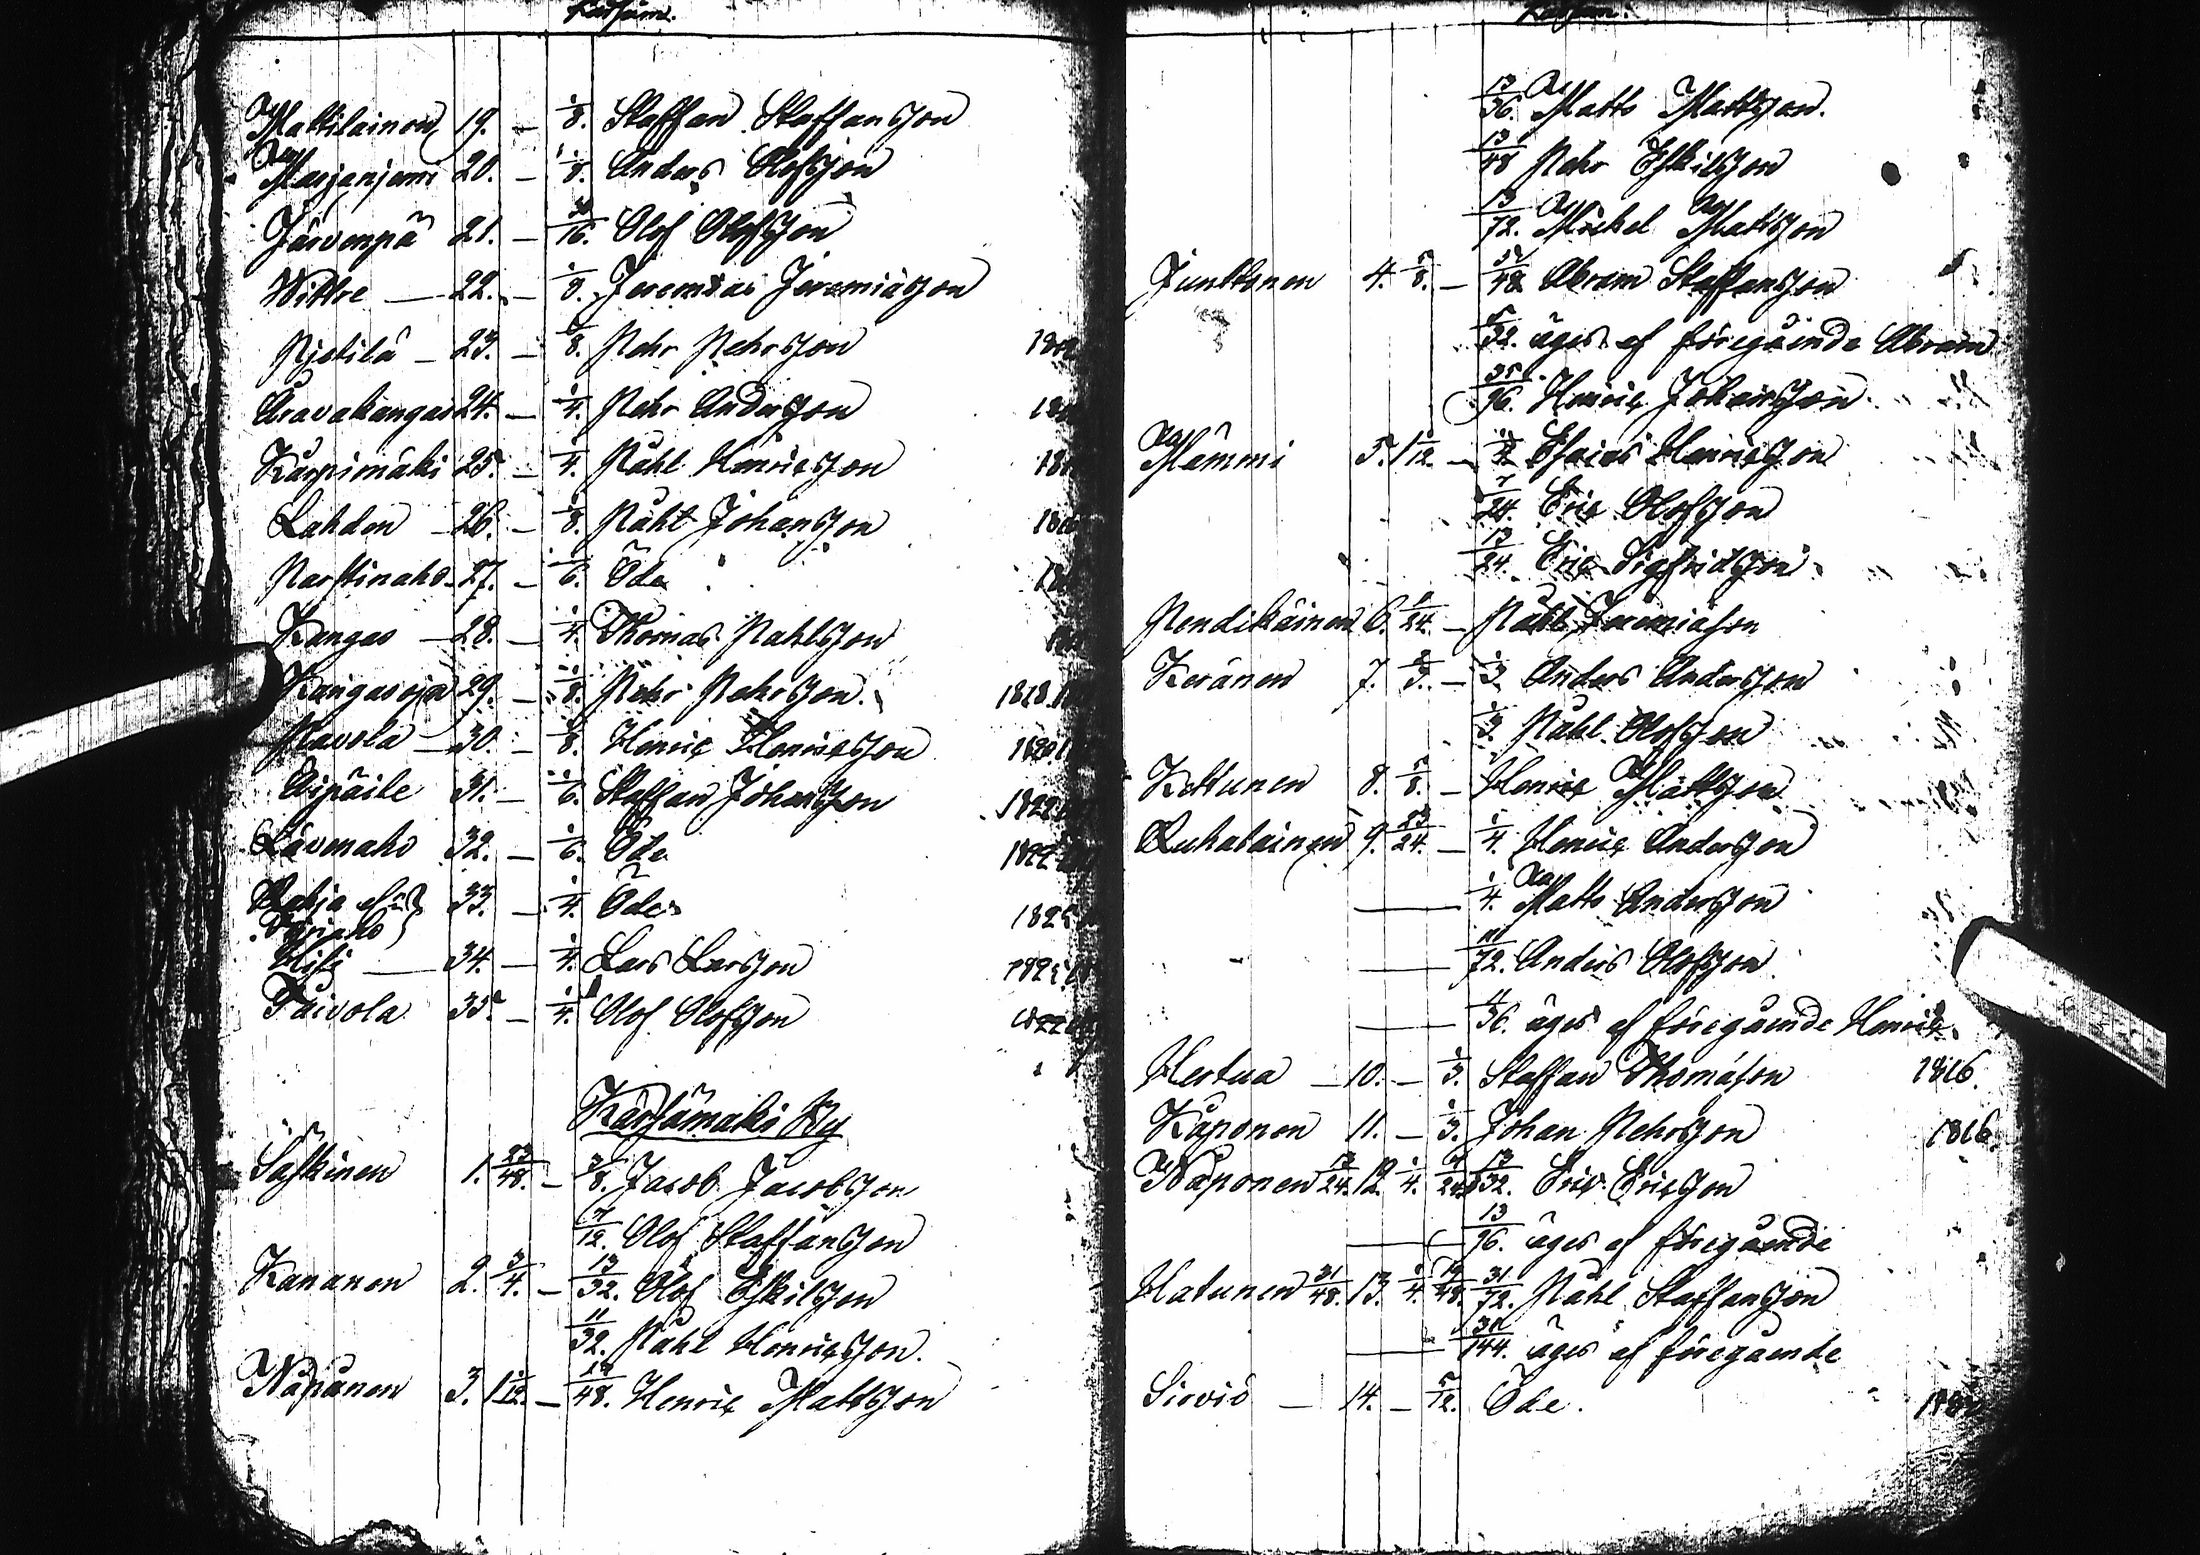 Mattilainen 19. — 1/8. Staffan Staffansson
Marjanjemi 20. — 1/8. Anders Olofsson
Järvenpä 21. — /16. Olof Olofsson
Wittre — 22. — 1/8. Jeremias Jeremiässon
Pjetilä — 23. — 1/8. Pehr Pehrsson
Aravakangas 24. — 1/4. Pehr Andersson
Karpimäki 25. — 1/4. Påhl Henricsson
Lahden — 26. — 1/8. Påhl Johansson
27. — 1/6. Öde
Kangas — 28. — 1/4. Thomas Påhlsson
Kangasoja 29. — 1/8. Pehr Pehrsson. 1818
Pavola — 30. — 1/8. Henric Henricsson 1820
31. — 1/6. Staffan Johansson 1822
32. — 1/6. Öde 1822
33. — 1/4. Öde 1825
Hisi — 34. — 1/4. Lars Larsson 1825
Taivola 35. — 1/4. Olof Olofsson
Kärsämäki By
Säskinen 1. 23/48. — 3/8. Jacob Jacobsson
7/12. Olof Staffansson
Kananen 2. 3/4. — 13/32. Olof Eskilsson
11/32. Påhl Henricsson.
Näpänen 3. 1 1/12. — 19/48. Henric Mattsson
13/36. Matts Mattsson.
13/48 Pehr Eskilsson
13/72. Mickel Mattsson
Junttonen 4. 5/8. — /48 Abram Staffansson
5/32. äges af föregående Abram
35/96. Henric Johansson
Mämmi 5. 1 1/12. — 1/4 Esaias Henricsson
7/24. Eric Olofsson
13/24. Eric Sigfridsson
Pendikäinen 6. 1/24. — Påhl Jeremiäson
Keränen 7. 2/3. — 1/3. Anders Andersson
1/3. Påhl Olofsson
Kettunen 8. 5/8. — Henric Mattsson
Luhatainen 9. 23/24. — 1/4. Henric Andersson
— 1/4. Matts Andersson
— /72. Anders Olofsson
— 11/36. äges af föregående Henric.
Hertua — 10. — 1/3. Staffan Thomäson 1816.
Kaponen 11. — 1/3. Johan Pehrsson 1816
Näponen 13/24. 12. 1/4. 7/24 13/32. Eric Ericsson
— 13/96. äges af föregående
Hatunen 31/48. 13. 1/4. 19/48. 31/72. Påhl Staffansson
— 31/144. äges af föregående
Sirviö — 14. — 5/12. Öde.